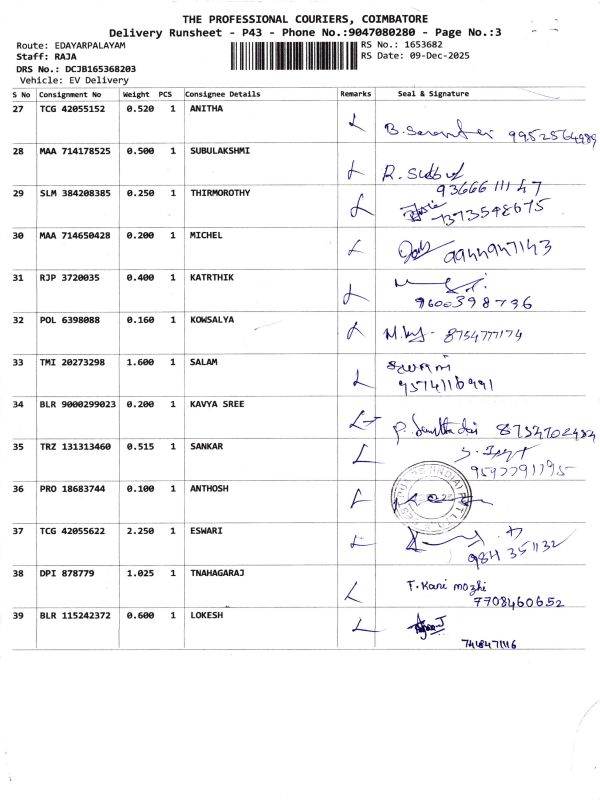 THE PROFESSIONAL COURIERS, COIMBATORE
Delivery Runsheet - P43 - Phone No.:9047080280 - Page No.:3
Route: EDAYARPALAYAM
Staff: RAJA
DRS No.: DCJB165368203
Vehicle: EV Delivery
RS No.: 1653682
RS Date: 09-Dec-2025
S No Consignment No Weight PCS Consignee Details Remarks Seal & Signature
27 TCG 42055152 0.520 1 ANITHA L
9952564989
28 MAA 714178525 0.500 1 SUBULAKSHMI L R.
9366611147
29 SLM 384208385 0.250 1 THIRMOROTHY L
7373548675
30 MAA 714650428 0.200 1 MICHEL L 9944947143
31 RJP 3720035 0.400 1 KATRTHIK L
9600398736
32 POL 6398088 0.160 1 KOWSALYA L 8754777174
33 TMI 20273298 1.600 1 SALAM L
34 BLR 9000299023 0.200 1 KAVYA SREE L
35 TRZ 131313460 0.515 1 SANKAR L
36 PRO 18683744 0.100 1 ANTHOSH L
37 TCG 42055622 2.250 1 ESWARI L
38 DPI 878779 1.025 1 TNAHAGARAJ L T. Kani mozhi
7708460652
39 BLR 115242372 0.600 1 LOKESH L
7418471116